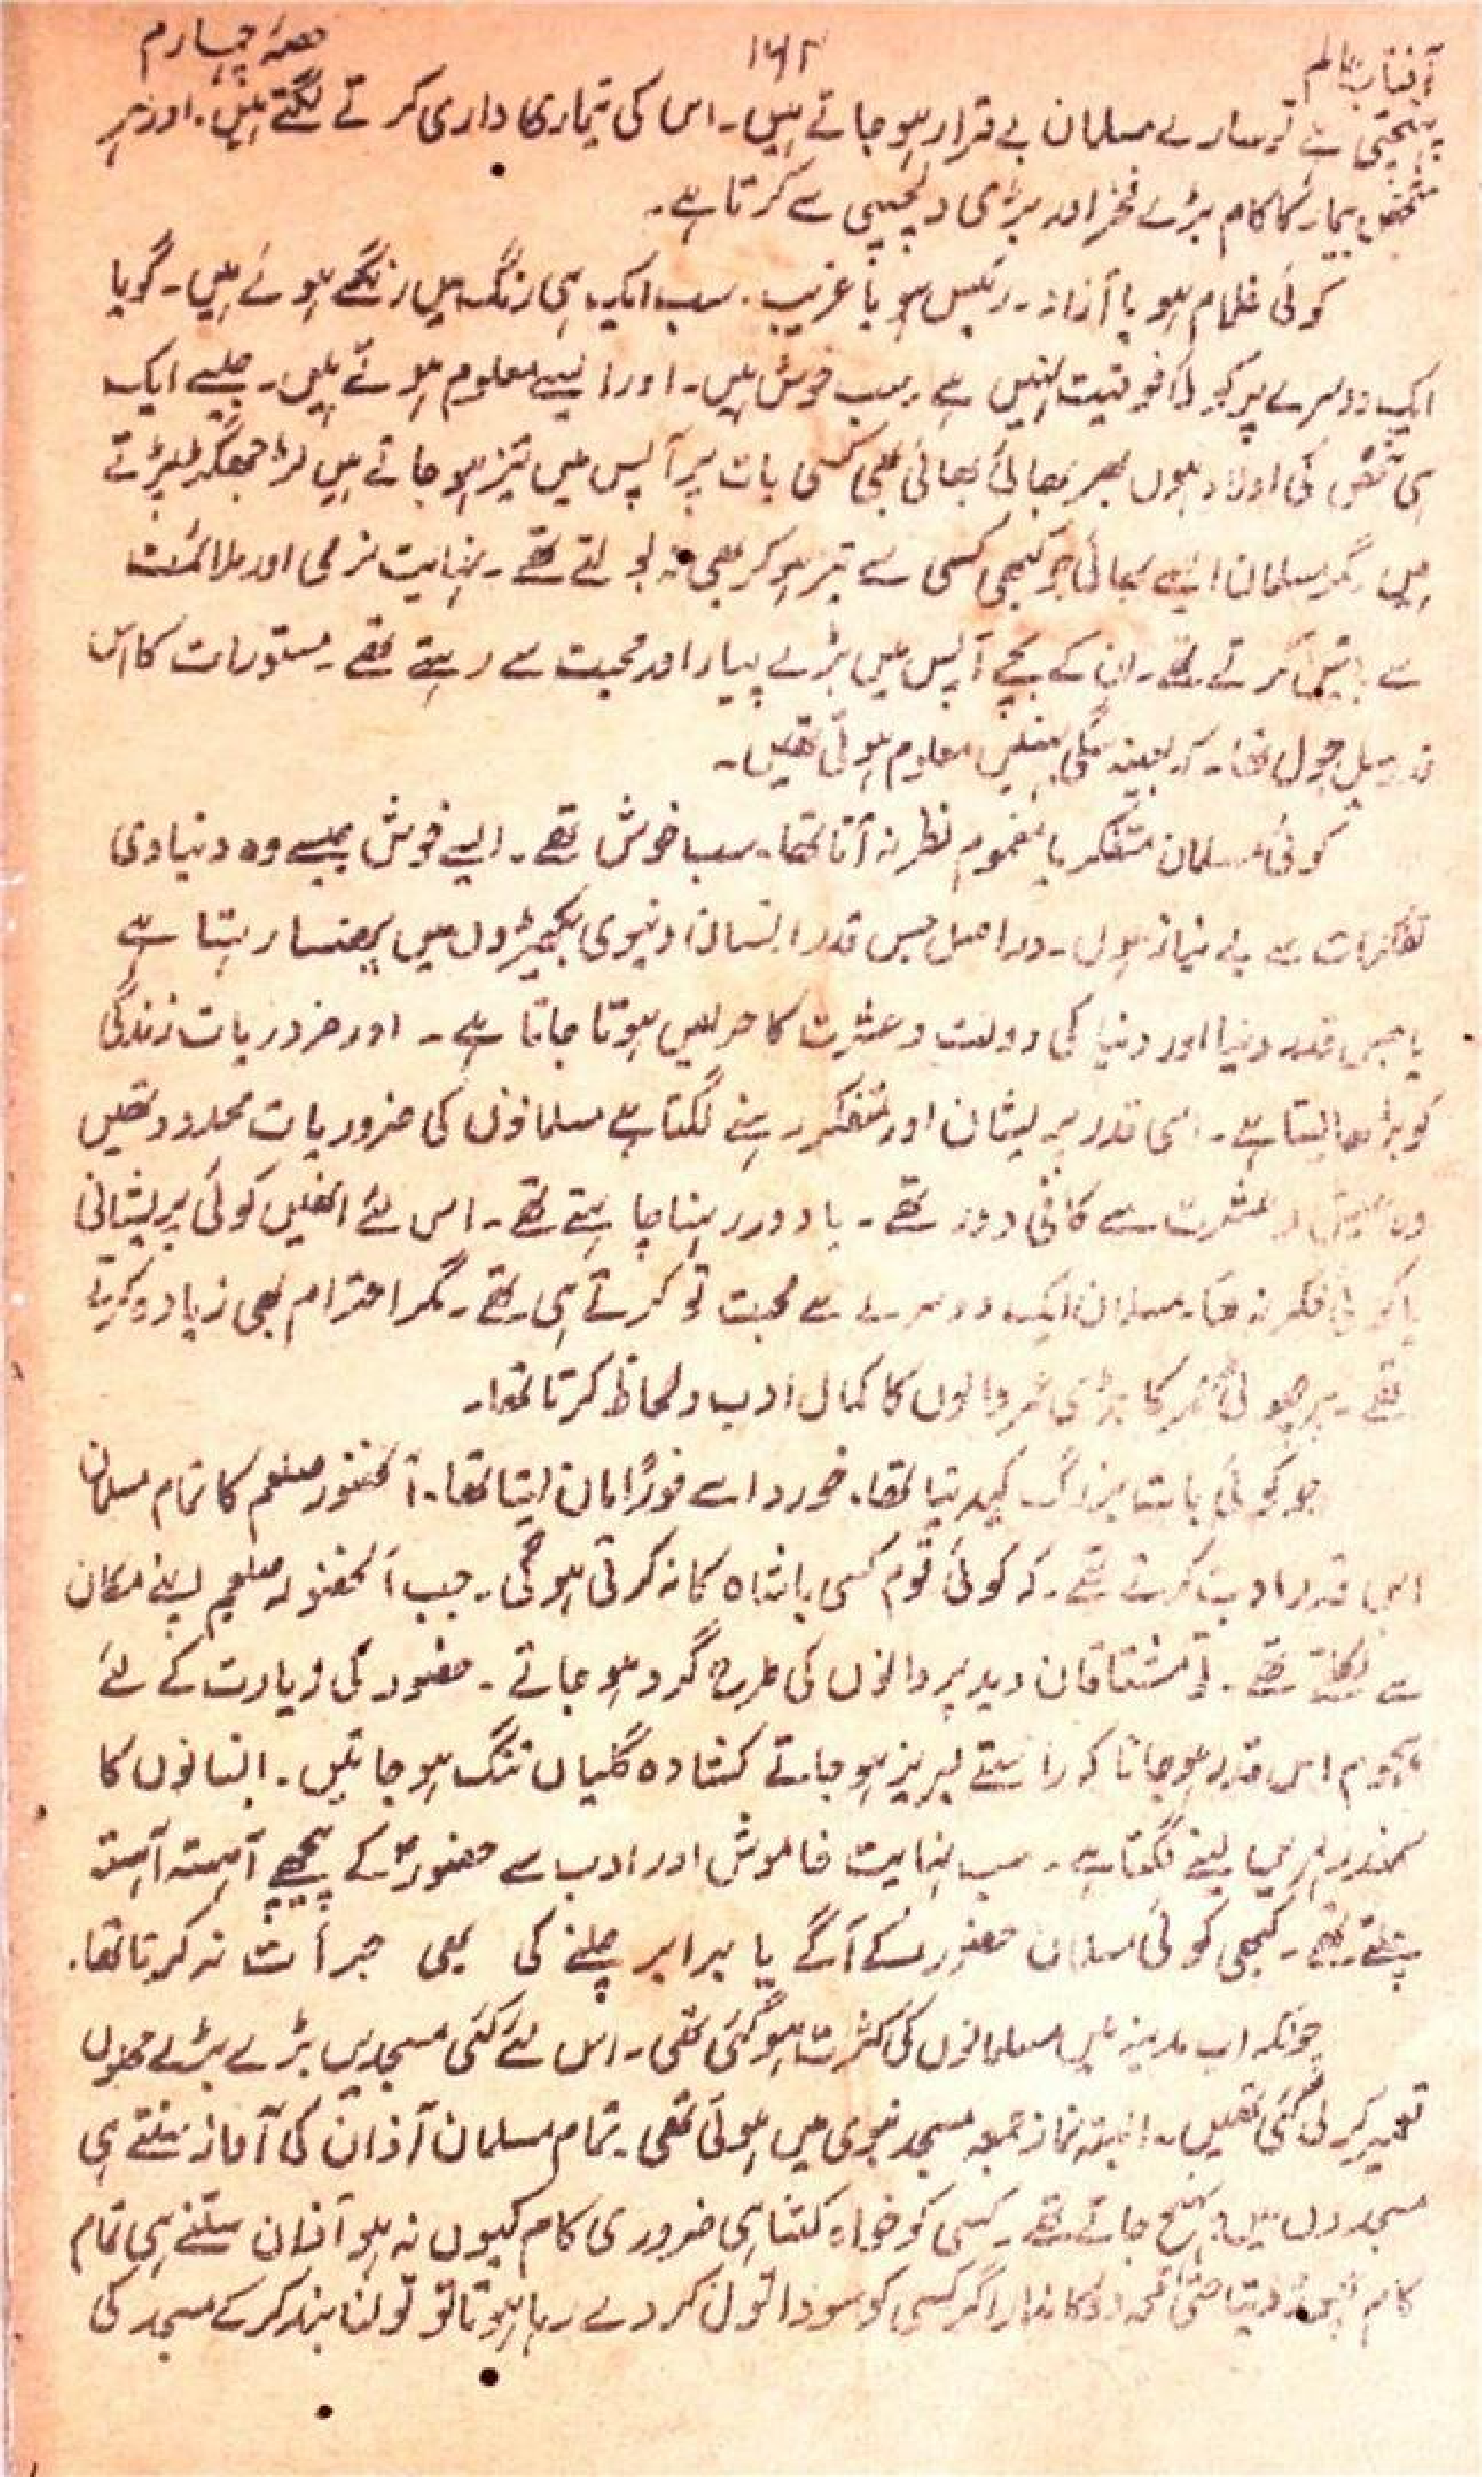 آفتاب عالم ۱۶۲ حصۂ چہارم
پہنچتی ہے تو سارے مسلمان بے قرار ہو جاتے ہیں۔ اس کی تیمار کا داری کرتے لگتے ہیں۔ اور ہر
شخص بیمار کا کام بڑے فخر اور بڑی دلچسپی سے کرتا ہے۔
کوئی غلام ہو یا آزاد۔ رئیس ہو یا غریب۔ سب ایک ہی رنگ میں رنگے ہوئے ہیں۔ گویا
ایک دوسرے پر کو فوقیت نہیں ہے۔ سب خوش ہیں۔ اور ایسے معلوم ہوتے ہیں۔ جیسے ایک
ہی شخص کی اولاد ہوں پھر بھائی بھائی بھی کسی بات پر آپس میں تیز ہو جاتے ہیں لڑ جھگڑ پڑتے
ہیں۔ مگر مسلمان ایسے بھائی جو کبھی کسی سے تیز ہو کر بھی نہ بولتے تھے۔ نہایت نرمی اور ملائمت
سے باتیں کرتے تھے۔ ان کے بچے آپس میں بڑے پیار اور محبت سے رہتے تھے۔ مستورات کا اس
قدر میل جول تھا۔ کہ بعینہ سگی بہنیں معلوم ہوتی تھیں۔
کوئی مسلمان متفکر یا مغموم نظر نہ آتا تھا۔ سب خوش تھے۔ ایسے خوش جیسے وہ دنیاوی
تفکرات سے بے نیاز ہوں۔ دراصل جس قدر انسان دنیوی بکھیڑوں میں پھنسا رہتا ہے
یا جس قدر دنیا اور دنیا کی دولت و عشرت کا حریص ہوتا جاتا ہے۔ اور ضروریات زندگی
کو بڑھا لیتا ہے۔ اسی قدر پریشان اور متفکر رہنے لگتا ہے مسلمانوں کی ضروریات محدود تھیں
وہ عیش و عشرت سے کافی دور تھے۔ یا دور رہنا چاہتے تھے۔ اس لئے انھیں کوئی پریشانی
یا کوئی فکر نہ تھا۔ مسلمان ایک دوسرے سے محبت تو کرتے ہی تھے۔ مگر احترام بھی زیادہ کرتے
تھے۔ ہر چھوٹی عمر کا بڑی عمر والوں کا کمال ادب و لحاظ کرتا تھا۔
جو کوئی بات بزرگ کہہ دیتا تھا۔ خورد اسے فوراً مان لیتا تھا۔ آنحضور صلعم کا تمام مسلمان
اس قدر ادب کرتے تھے۔ کہ کوئی قوم کسی بادشاہ کا نہ کرتی ہوگی۔ جب آنحضور صلعم اپنے مکان
سے نکلتے تھے۔ تو مشتاقان دید پروانوں کی طرح گرد ہو جاتے۔ حضور کی زیارت کے لئے
ہجوم اس قدر ہو جاتا کہ راستے لبریز ہو جاتے کشادہ گلیاں تنگ ہو جاتیں۔ انسانوں کا
سمندر لہریں لینے لگتا ہے۔ سب نہایت خاموش اور ادب سے حضورؐ کے پیچھے آہستہ آہستہ
چلتے تھے۔ کبھی کوئی مسلمان حضورؐ کے آگے یا برابر چلنے کی بھی جرأت نہ کرتا تھا۔
چونکہ اب مدینہ میں مسلمانوں کی کثرت ہو گئی تھی۔ اس لئے کئی مسجدیں بڑے بڑے محلوں
تعمیر کر لی گئی تھیں۔ البتہ نماز جمعہ مسجد نبوی میں ہوتی تھی۔ تمام مسلمان آذان کی آواز سنتے ہی
مسجدوں میں پہنچ جاتے تھے۔ کسی کو خواہ کتنا ہی ضروری کام کیوں نہ ہو آذان سنتے ہی تمام
کام چھوڑ دیتا حتیٰ کہ دوکاندار اگر کسی کو سودا تول کر دے رہا ہوتا تو تولنا بند کر کے مسجد کی